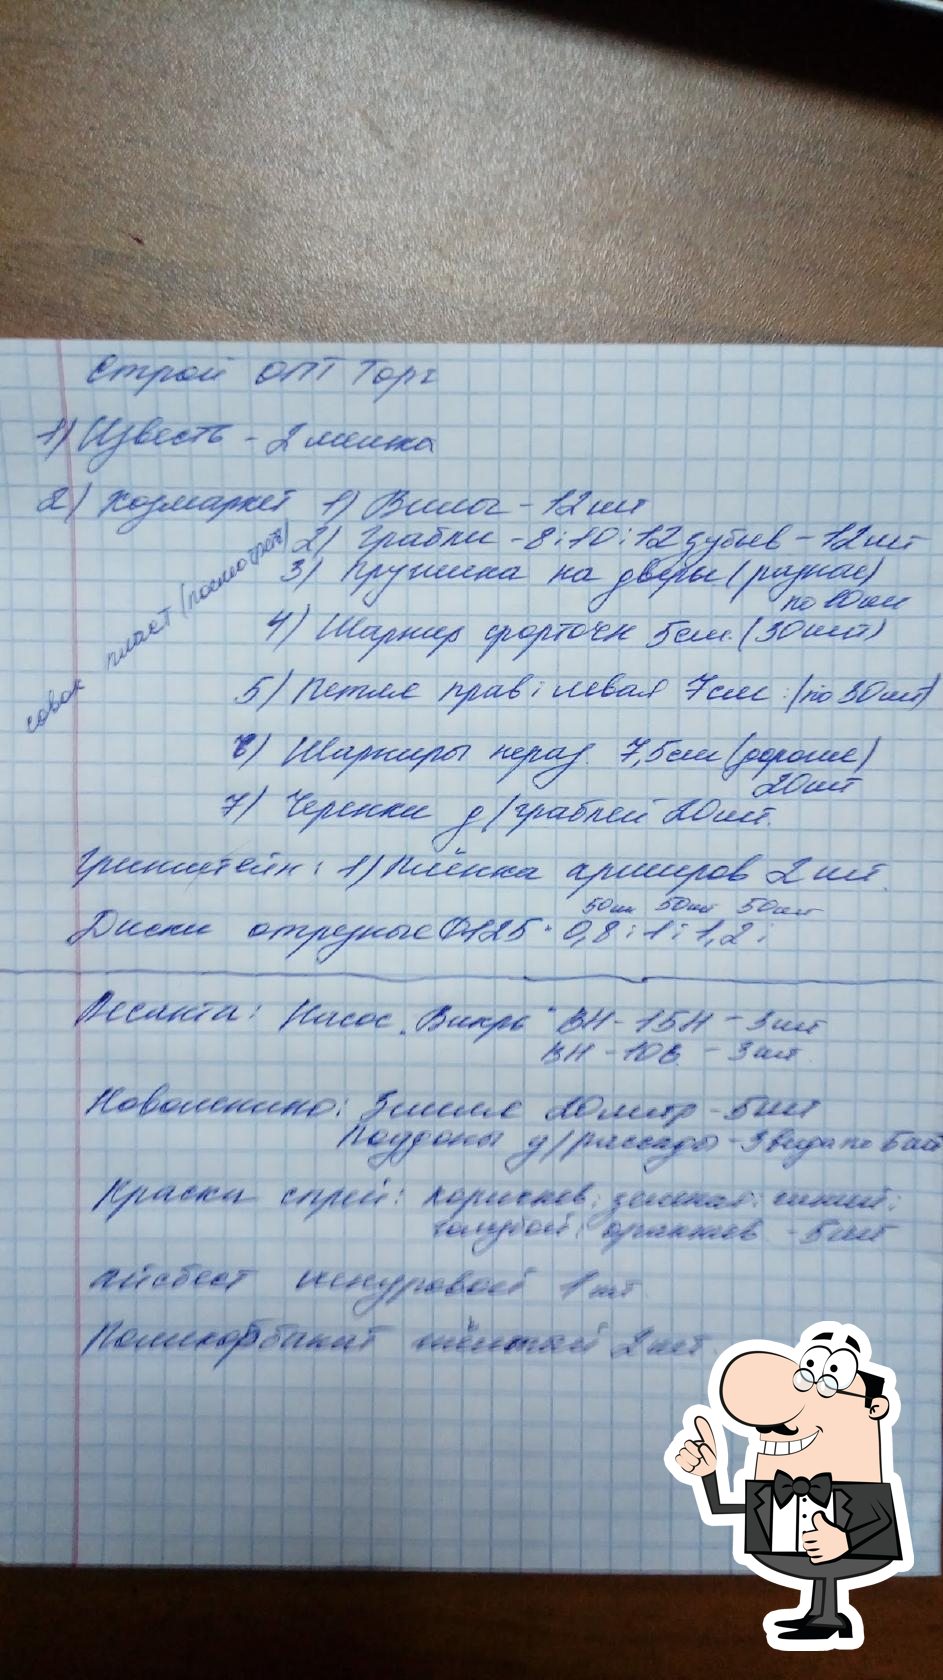 Строй ОПТ Торг
1) Известь - 2 мешка
2) Хозмаркет 1) Вилы - 12 шт
2) Грабли - 8; 10; 12 зубьев - 12 шт
3) Пружинка на дверь (разная)
по 10 шт
4) Шарнир форточн 5 см. (30 шт)
5) Петля прав; левая 7 см: (по 30 шт)
6) Шарниры нераз. 7,5 см (дороже)
20 шт
7) Черенки д/граблей 20 шт.
совок пласт (посмотреть)
Гринштейн: 1) Плёнка армиров 2 шт.
50 шт 50 шт 50 шт
Диски отрезные Ф125 * 0,8; 1; 1,2;
Ресанта: Насос "Вихрь" ВН-15Н - 3 шт
ВН-10В - 3 шт.
Новоленино: 20 литр - 5 шт
Поддоны д/рассады - 3 вида по 5 шт
Краски спрей: коричнев; зеленая; синий;
голубой; оранжев - 5 шт
Айсбест шнуровой 1 шт.
Поликарбонат жёлтый 2 шт.